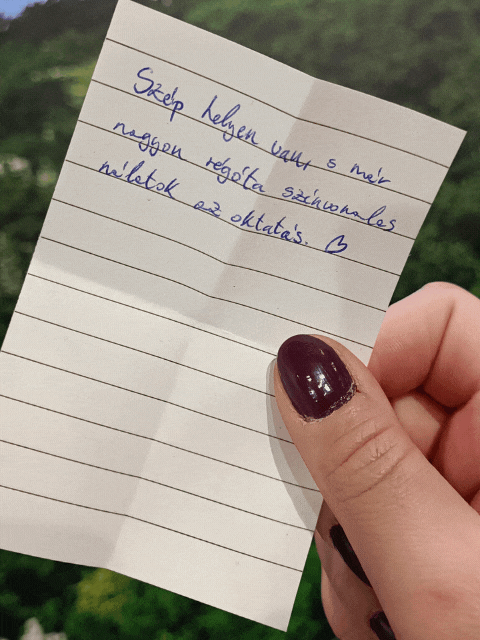 Szép helyen van, s már
nagyon régóta színvonalas
nálatok az oktatás. ♡